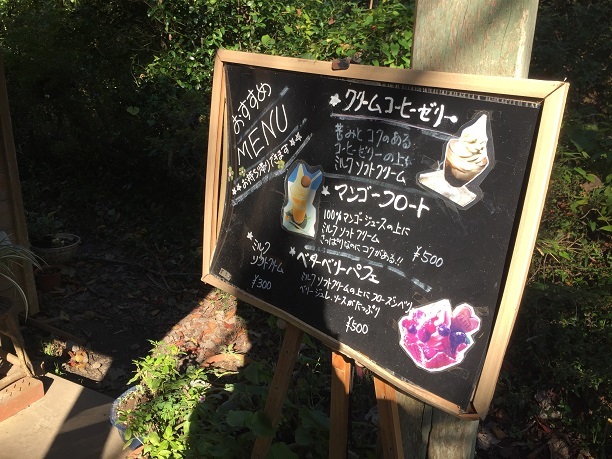 おすすめ
MENU
★お持ち帰りできます★
★クリームコーヒーゼリー★
苦みとコクのある
コーヒーゼリーの上に
ミルクソフトクリーム
★マンゴーフロート
100%マンゴージュースの上に
ミルクソフトクリーム
さっぱりなのにコクがある!!
¥500
★ミルク
ソフトクリーム
¥300
★ベターベリーパフェ
ミルクソフトクリームの上にフローズンベリー
ベリージュレソースがたっぷり
¥500